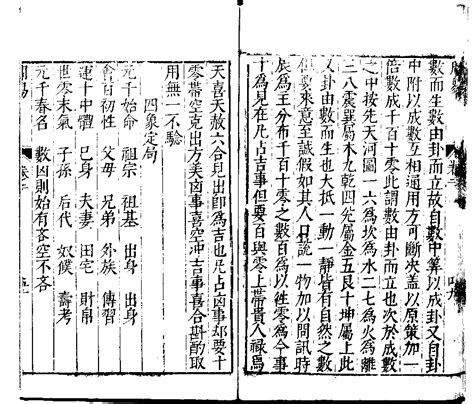 數而生數由卦而立故自數中筭以成卦又自卦
中附以成數互相通用方可斷決蓋以原策加一
倍數成千百十零此謂數由卦而立也次於成數
之中按先天河圖一六為坎為水二七為火為離
三八震巽屬木九乾四兊屬金五艮十坤屬土此
又卦由數而生也大抵一動一靜皆有自然之數
但要來意至誠假如其人日說一物加以問訊時
辰為主分布千百十零之數百為以徃零為今事
十為見在凡占吉事但要百與零上帶貴人祿馬
天喜天赦六合見出即為吉也凡占凶事却要十
零帶空克出方美凶事喜空冲吉事喜合斟酌取
用無一不驗
四象定局
元千始命 祖宗 祖基 出身 出身
會百初性 父母 兄弟 外族 傳習
運十中體 巳身 夫妻 田宅 財帛
世零末氣 子孫 后代 奴僕 壽考
元千春名 數凶則始有吝空不吝
卷二